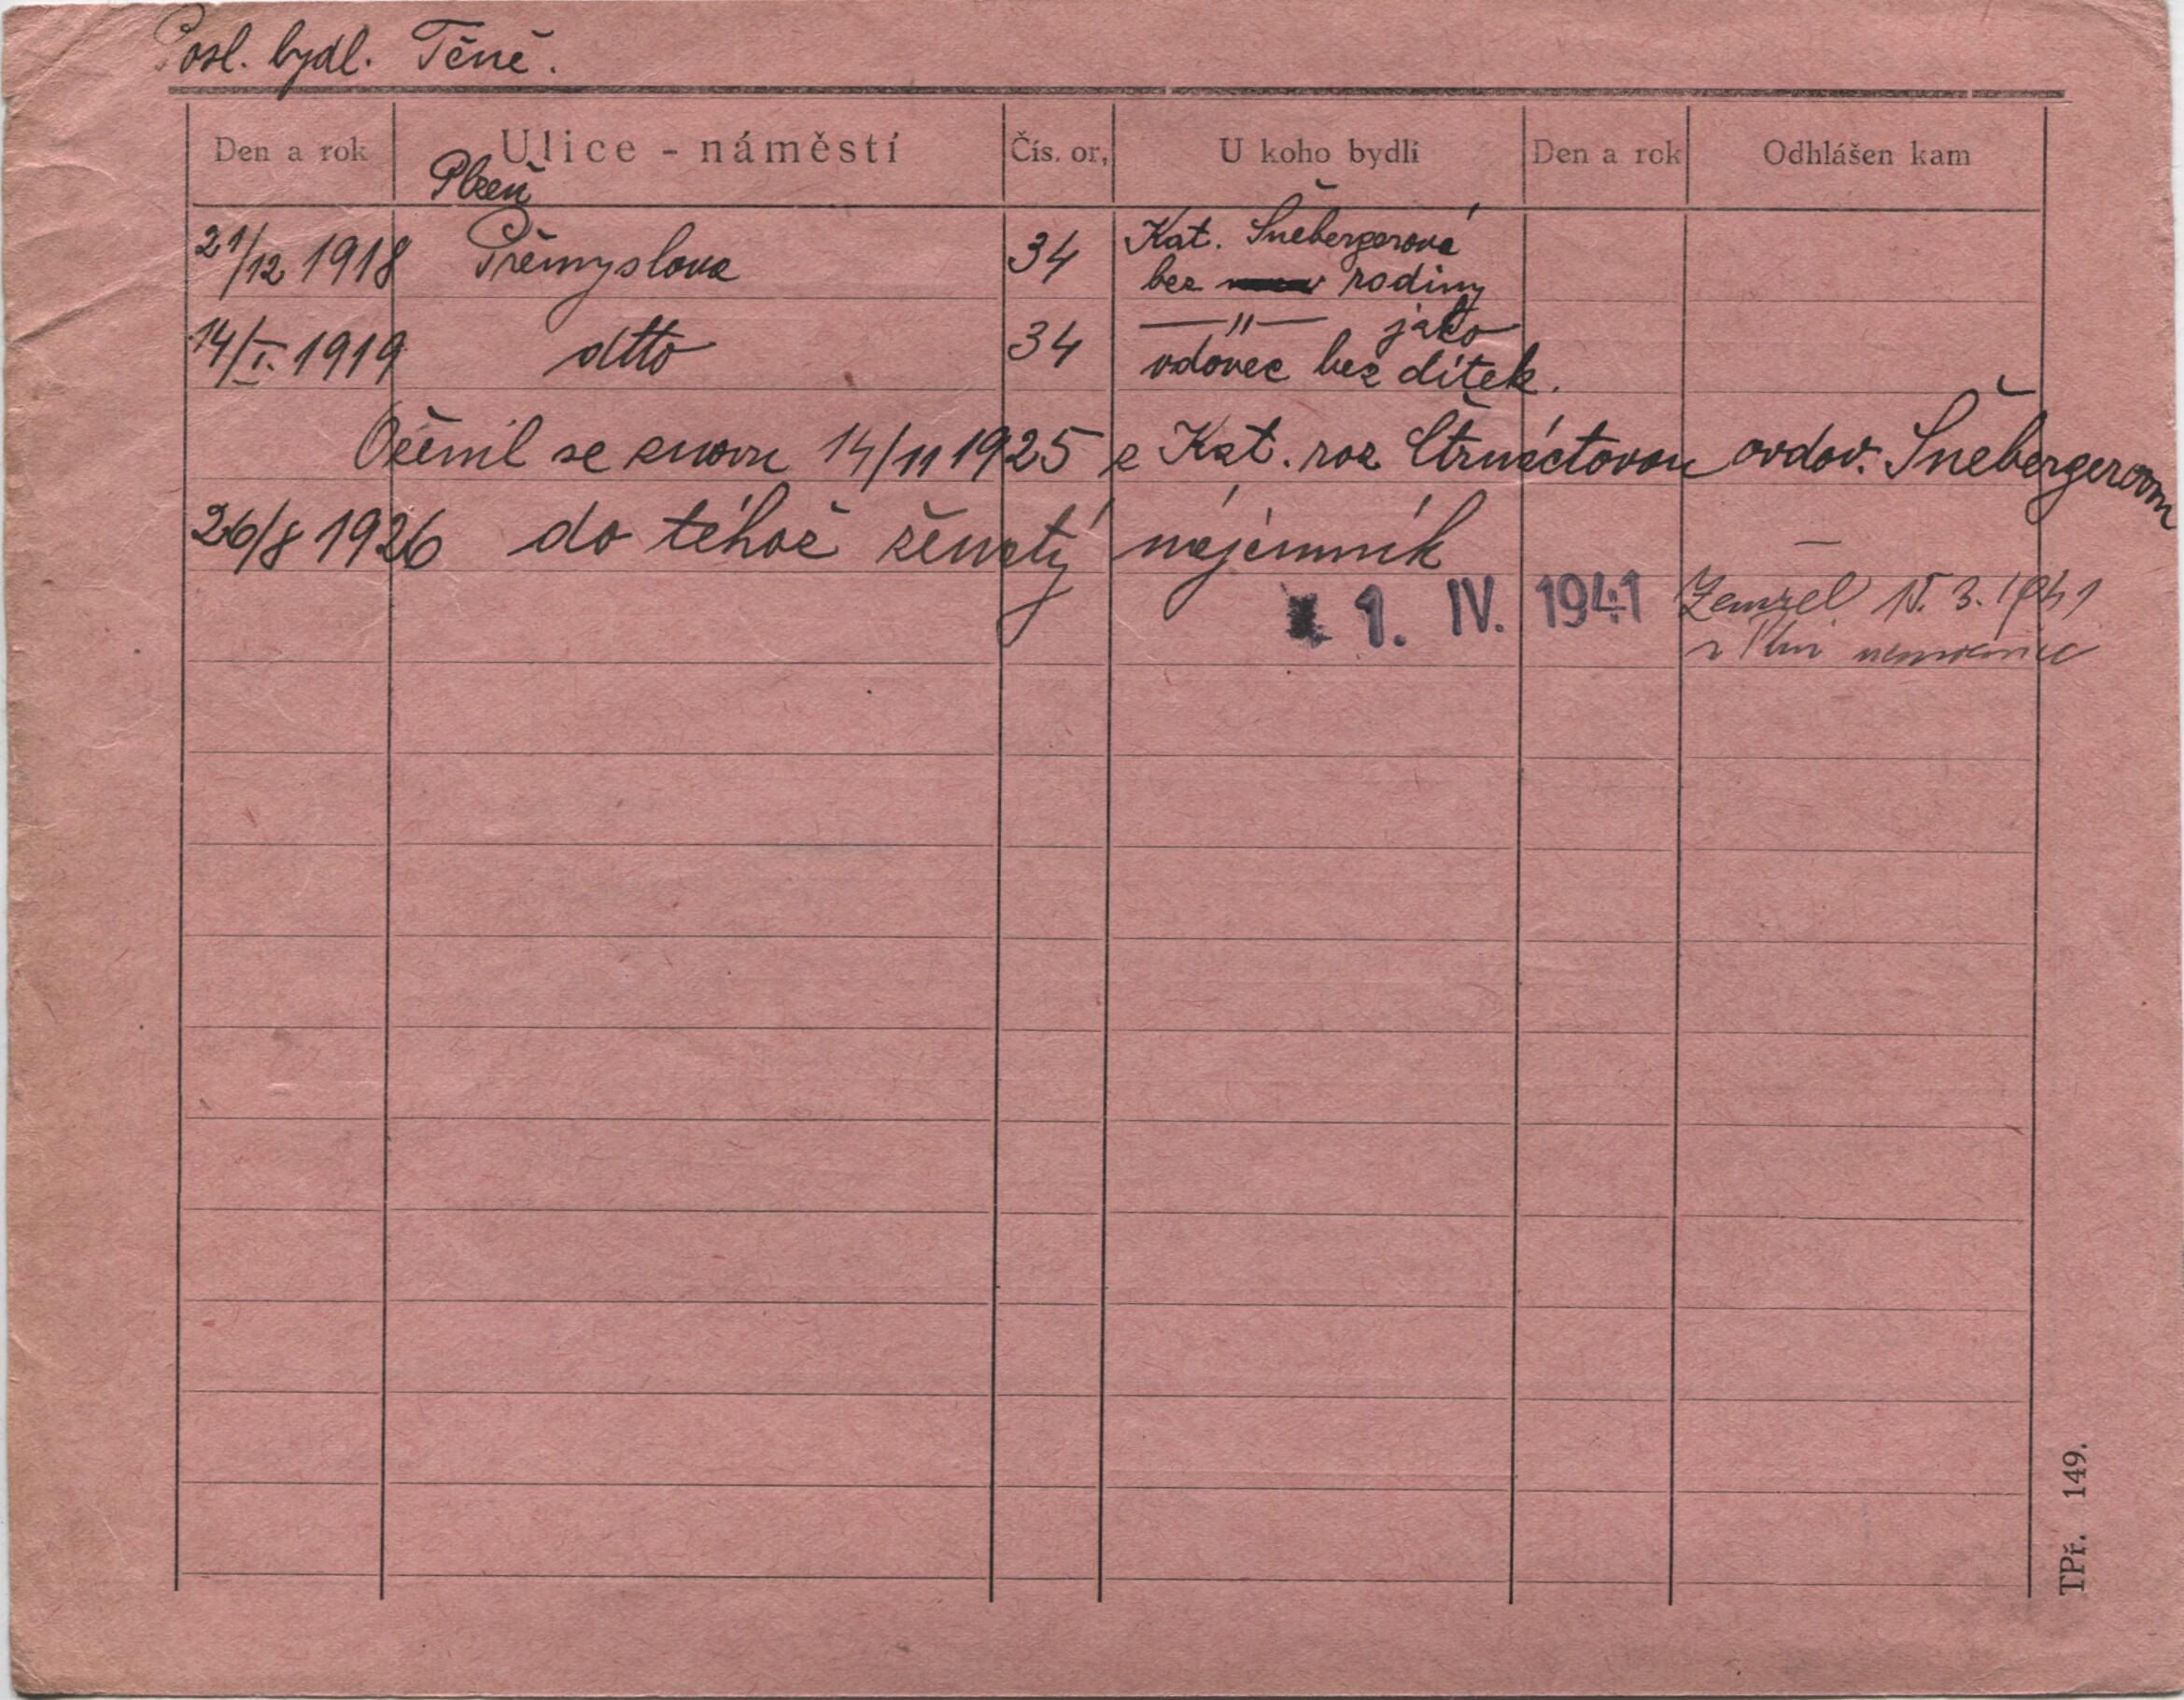 Posl. bydl. Těně.
Den a rok Ulice - náměstí Čís. or. U koho bydlí Den a rok Odhlášen kam
Plzeň
21/12 1918 Přemyslova 34 Kat. Šnebergerová
bez rodiny
14/I. 1919 dtto 34 —"— jako
vdovec bez dítek.
Oženil se znovu 14/11 1925 z Kat. roz Čtrnáctovou ovdov. Šnebergerovou
26/8 1926 do téhož ženatý nájemník —
1. IV. 1941 Zemřel 15. 3. 1941
v Plzni nemocnice
TPř. 149.